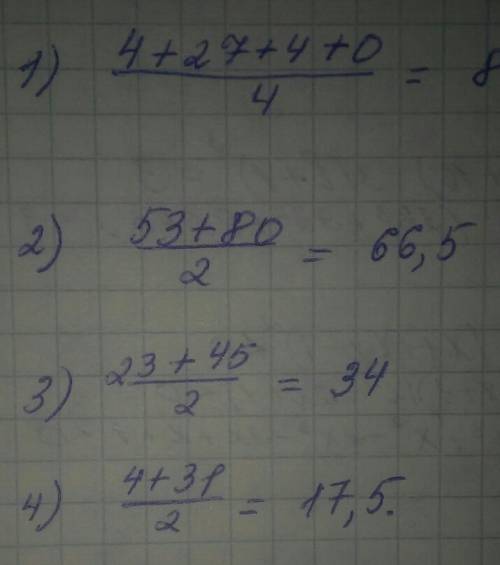 1) (4+27+4+0)/4 = 8
2) (53+80)/2 = 66,5
3) (23+45)/2 = 34
4) (4+31)/2 = 17,5.